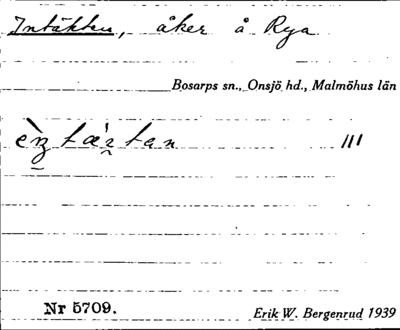 Intäkten, åker å Rya
Bosarps sn., Onsjö hd., Malmöhus län
III
Nr 5709.
Erik W. Bergenrud 1939